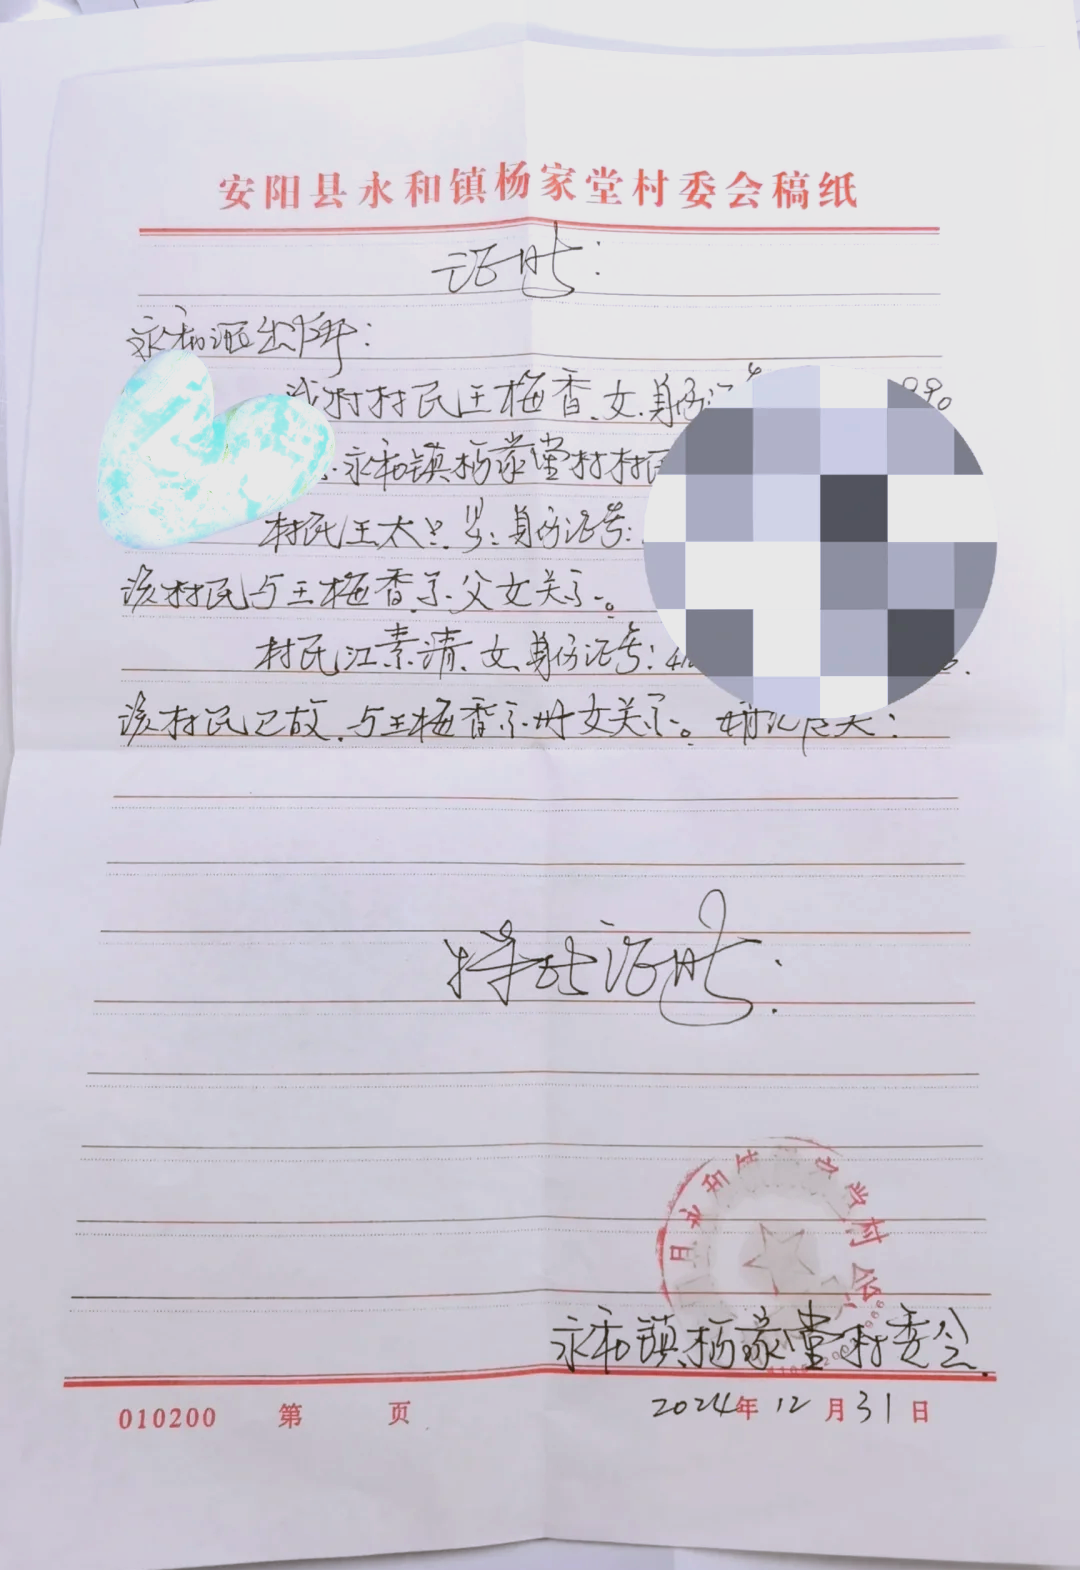 安阳县永和镇杨家堂村委会稿纸
证明:
永和派出所:
我村村民王梅香、女、身份证 990
永和镇杨家堂村村民
村民王太 男:身份证号:
该村民与王梅香系父女关系。
村民江素清、女、身份证号:410
该村民已故、与王梅香系母女关系。
特此证明
县永和 堂村
永和镇杨家堂村委会
010200 第 页 2024年12月31日